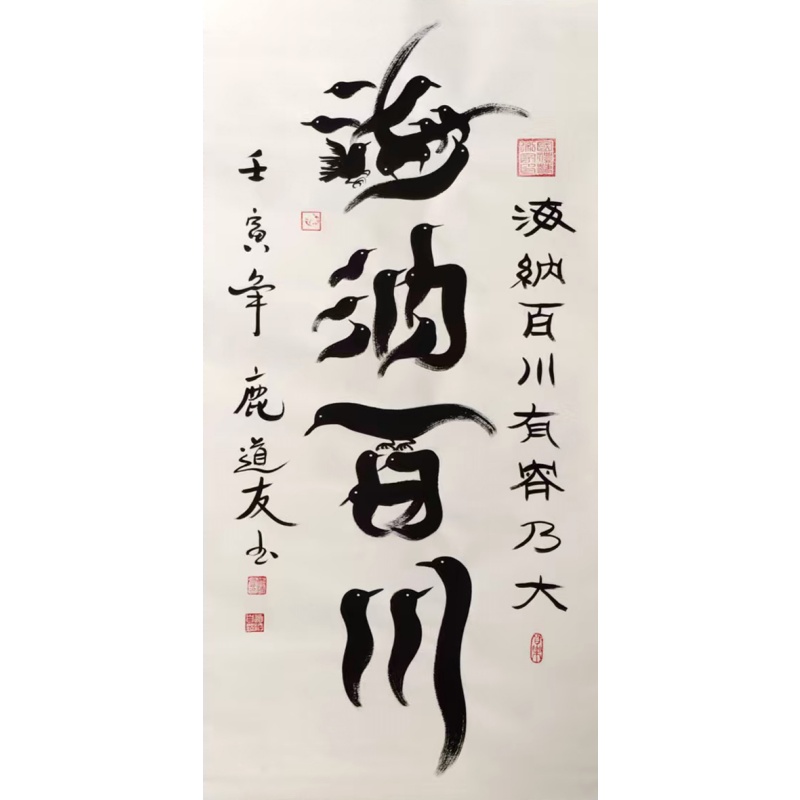 海納百川有容乃大
海納百川
壬寅年 鹿道友书